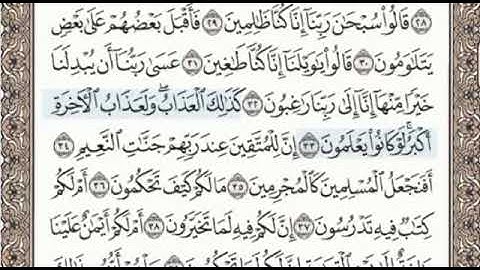 ٢٨ قَالُوا۟ سُبْحَٰنَ رَبِّنَآ إِنَّا كُنَّا ظَٰلِمِينَ ٢٩ فَأَقْبَلَ بَعْضُهُمْ عَلَىٰ بَعْضٍ
يَتَلَٰوَمُونَ ٣٠ قَالُوا۟ يَٰوَيْلَنَآ إِنَّا كُنَّا طَٰغِينَ ٣١ عَسَىٰ رَبُّنَآ أَن يُبْدِلَنَا
خَيْرًا مِّنْهَآ إِنَّآ إِلَىٰ رَبِّنَا رَٰغِبُونَ ٣٢ كَذَٰلِكَ ٱلْعَذَابُ ۖ وَلَعَذَابُ ٱلْءَاخِرَةِ
أَكْبَرُ ۚ لَوْ كَانُوا۟ يَعْلَمُونَ ٣٣ إِنَّ لِلْمُتَّقِينَ عِندَ رَبِّهِمْ جَنَّٰتِ ٱلنَّعِيمِ ٣٤
أَفَنَجْعَلُ ٱلْمُسْلِمِينَ كَٱلْمُجْرِمِينَ ٣٥ مَا لَكُمْ كَيْفَ تَحْكُمُونَ ٣٦ أَمْ لَكُمْ
كِتَٰبٌ فِيهِ تَدْرُسُونَ ٣٧ إِنَّ لَكُمْ فِيهِ لَمَا تَخَيَّرُونَ ٣٨ أَمْ لَكُمْ أَيْمَٰنٌ عَلَيْنَا